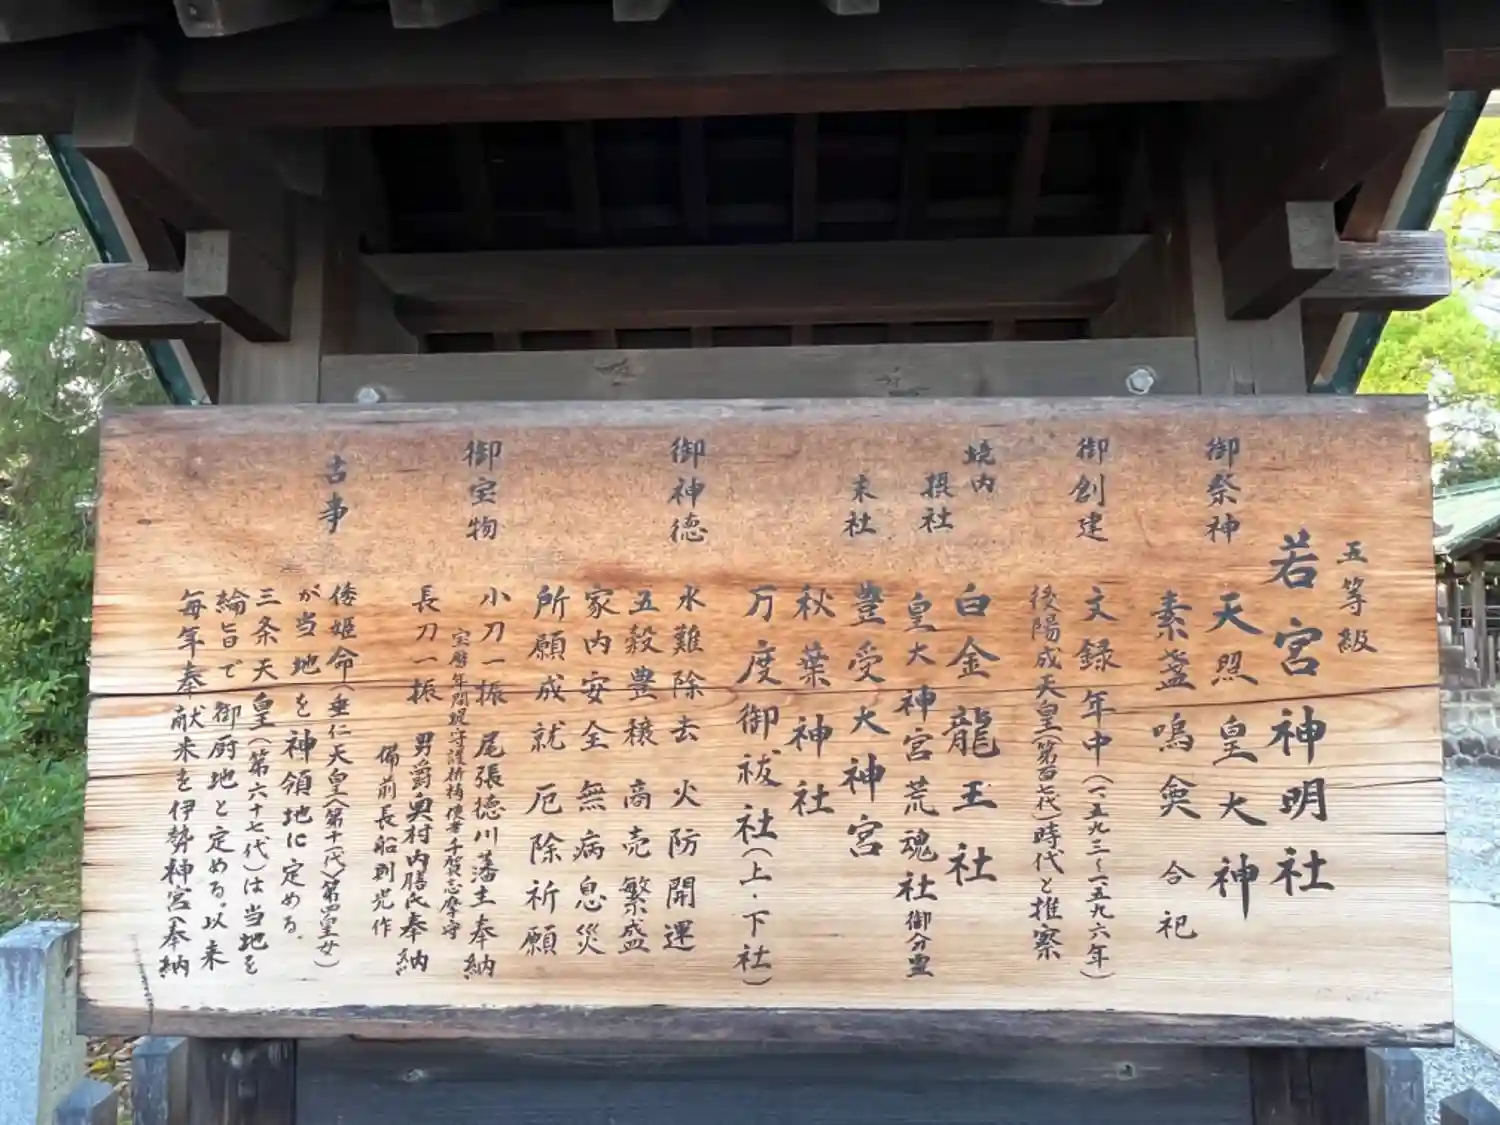 五等級
若宮神明社
御祭神
天照皇大神
素盞嗚奠 合祀
御創建
文録年中（一五九三〜一五九六年）
後陽成天皇（第百七代）時代と推察
境内
摂社
白金龍王社
皇大神宮荒魂社御分霊
末社
豊受大神宮
秋葉神社
万度御祓社（上・下社）
御神徳
水難除去 火防開運
五穀豊穣 商売繁盛
家内安全 無病息災
所願成就 厄除祈願
御宝物
小刀一振 尾張徳川藩主奉納
宝暦年間堤守護祈祷使者千賀志摩守
長刀一振 男爵奥村内膳氏奉納
備前長船則光作
古事
倭姫命（垂仁天皇〈第十一代〉第四皇女）
が当地を神領地に定める。
三条天皇（第六十七代）は当地を
綸旨で御厨地と定める。以来
毎年奉献米を伊勢神宮へ奉納